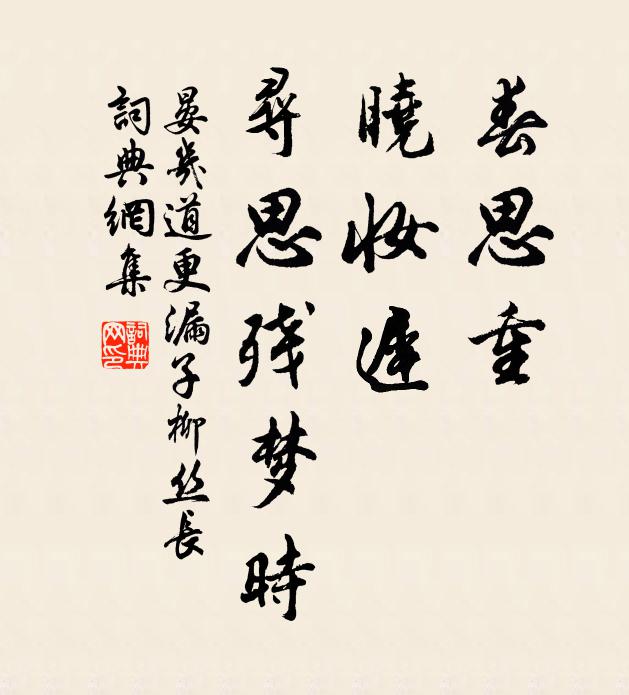 春思重
曉妝遲
尋思残梦時
晏幾道更漏子柳丝長
詞典網集
詞典网印